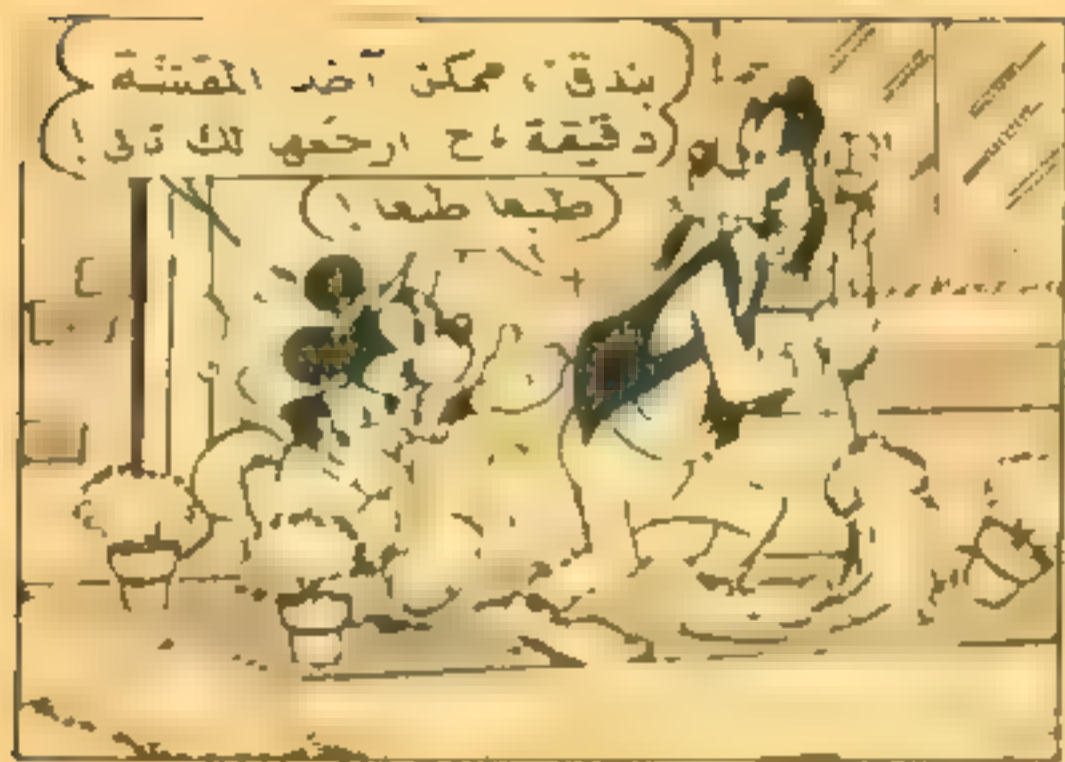 بندق ، ممكن آخد المقشة
دقيقة ، ح ارجعها لك تانى !
طبعا طبعا !